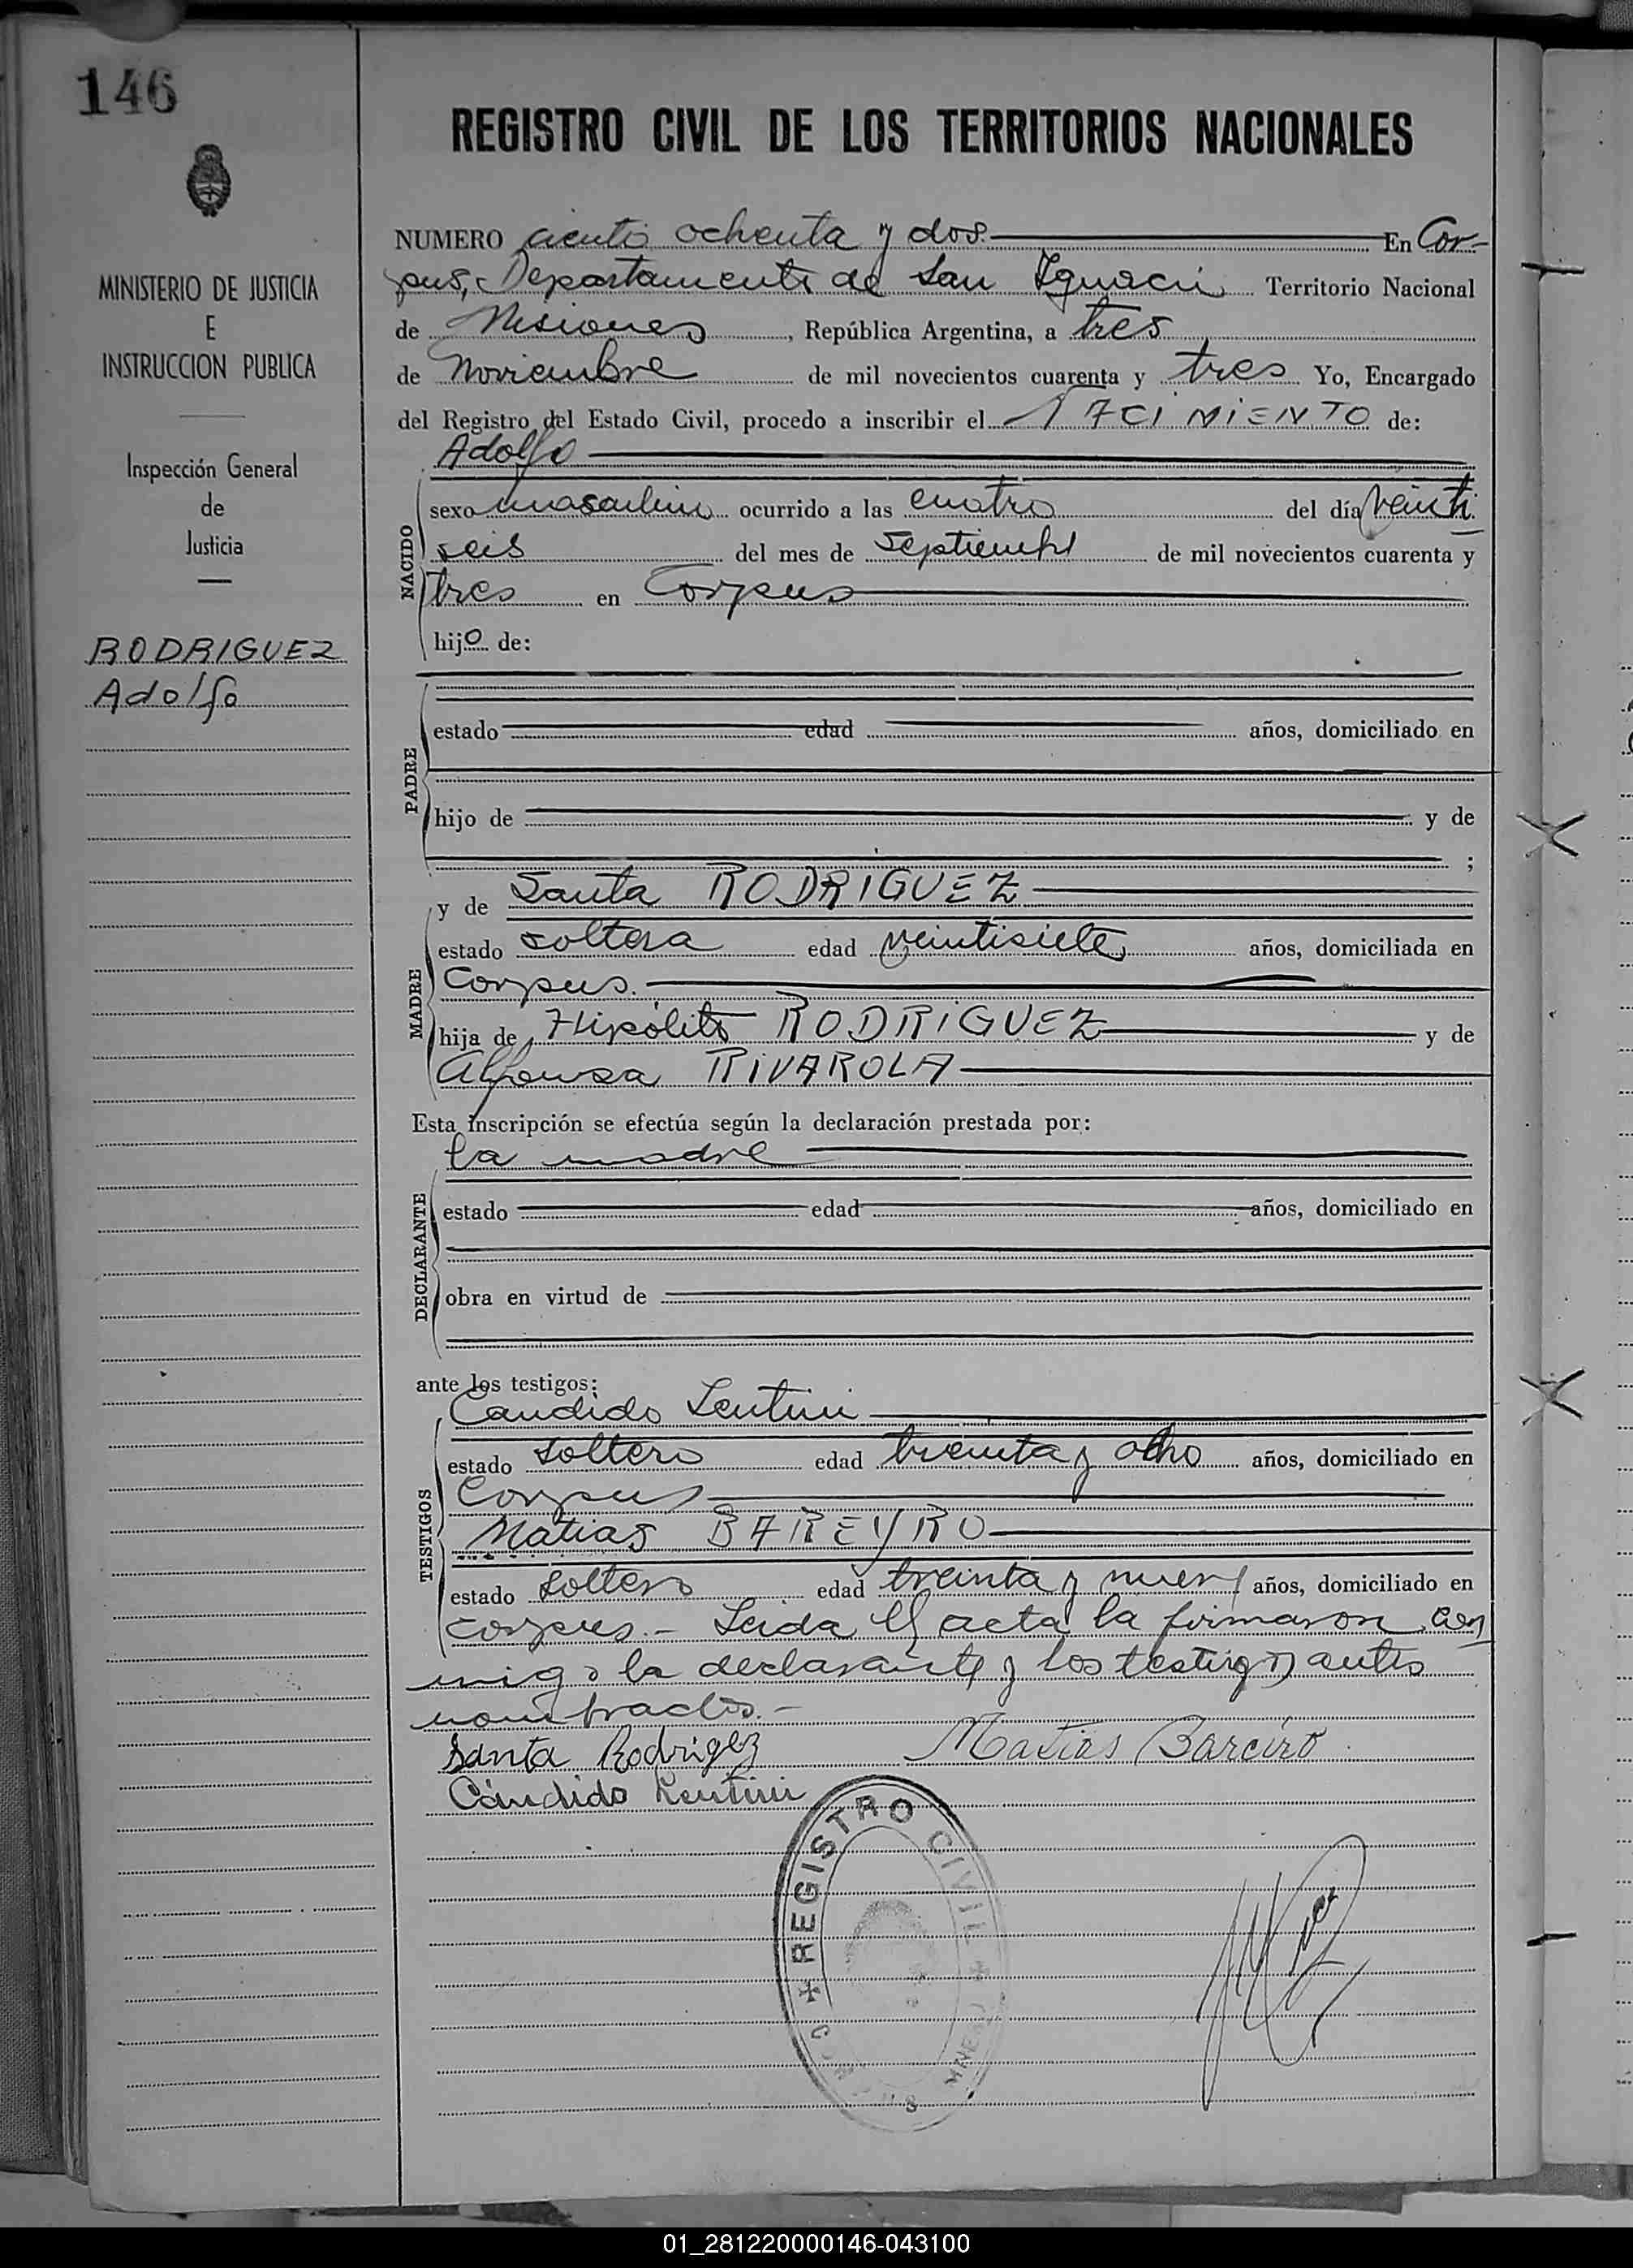 146
REGISTRO CIVIL DE LOS TERRITORIOS NACIONALES
MINISTERIO DE JUSTICIA
E
INSTRUCCION PUBLICA
Inspección General
de
Justicia
RODRIGUEZ
Adolfo
NUMERO ciento ochenta y dos. En Cor-
pus, Departamento de San Ignacio Territorio Nacional
de Misiones, República Argentina, a tres
de Noviembre de mil novecientos cuarenta y tres Yo, Encargado
del Registro del Estado Civil, procedo a inscribir el NACIMIENTO de:
Adolfo
NACIDO
sexo masculino ocurrido a las cuatro del día veinti
seis del mes de Septiembre de mil novecientos cuarenta y
tres en Corpus
hijo de:
PADRE
estado edad años, domiciliado en
hijo de y de
;
MADRE
y de Santa RODRIGUEZ
estado soltera edad veintisiete años, domiciliada en
Corpus.
hija de Hipólito RODRIGUEZ y de
Alfonsa RIVAROLA
Esta inscripción se efectúa según la declaración prestada por:
la madre
DECLARANTE
estado edad años, domiciliado en
obra en virtud de
ante los testigos:
TESTIGOS
Candido Lentini
estado soltero edad treinta y ocho años, domiciliado en
Corpus
Matias BAREYRO
estado soltero edad treinta y nueve años, domiciliado en
corpus.- Leida el acta la firmaron con
migo la declarante y los testigos antes
nombrados.-
Santa Rodrigez Matias Bareiro
Cándido Lentini
REGISTRO CIVIL
01_281220000146-043100